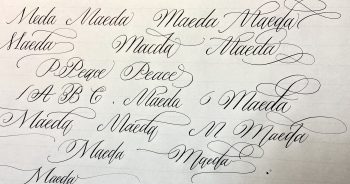 Meda Maeda Maeda Maeda
Maeda Maeda Maeda
P Peace Peace
1 A B C . Maeda 6 Maeda
Maeda Maeda M Maeda
Maeda Maeda
Maeda